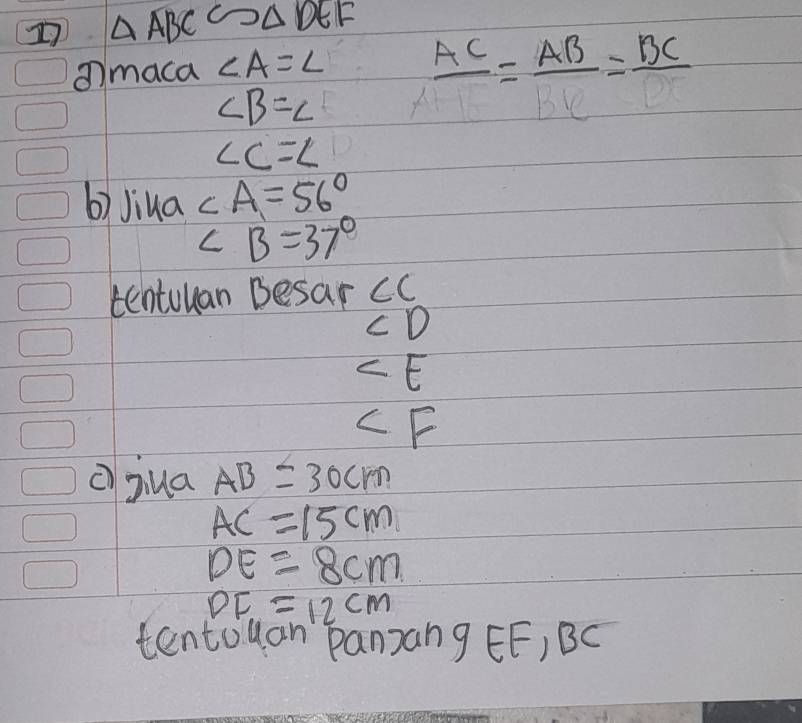 1) △ ABC ∽ △ DEF
a) maca <A = < AC/ = AB/ = BC/
<B = <
<C = <
b) Jika < A = 56°
< B = 37°
tentukan Besar <C
< D
< E
< F
c) jika AB = 30 cm
AC = 15 cm
DE = 8 cm
DF = 12 cm
tentukan panjang EF, BC